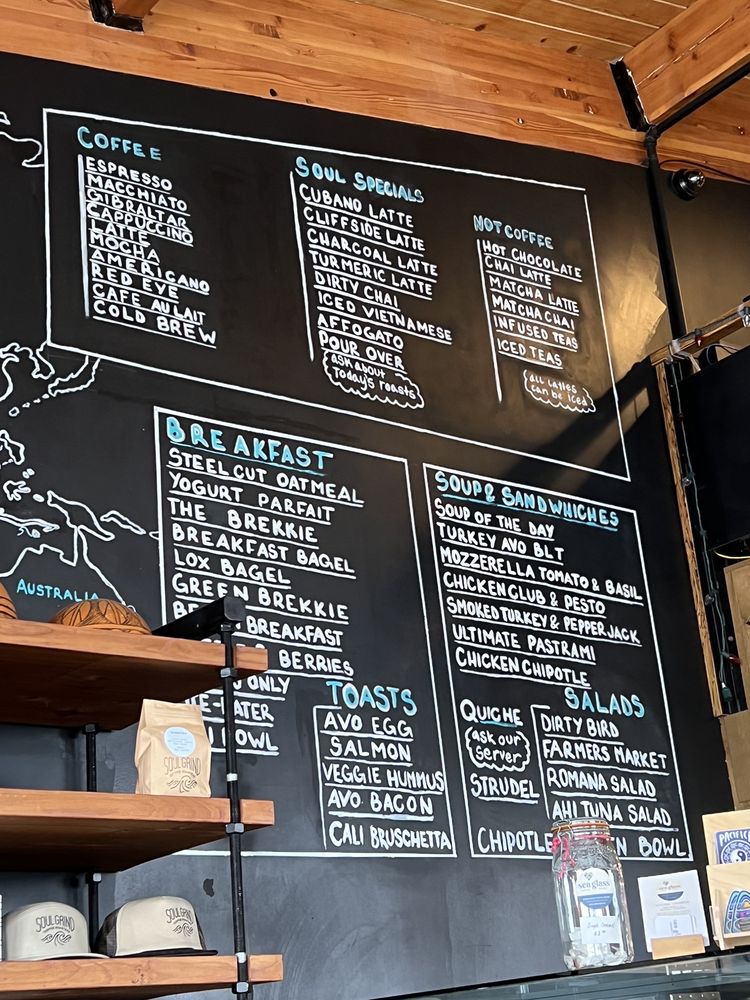 COFFEE
ESPRESSO
MACCHIATO
GIBRALTAR
CAPPUCCINO
LATTE
MOCHA
AMERICANO
RED EYE
CAFE AU LAIT
COLD BREW
SOUL SPECIALS
CUBANO LATTE
CLIFFSIDE LATTE
CHARCOAL LATTE
TURMERIC LATTE
DIRTY CHAI
ICED VIETNAMESE
AFFOGATO
POUR OVER
ask about
today's roasts
NOT COFFEE
HOT CHOCOLATE
CHAI LATTE
MATCHA LATTE
MATCHA CHAI
INFUSED TEAS
ICED TEAS
all lattes
can be iced
BREAKFAST
STEEL CUT OATMEAL
YOGURT PARFAIT
THE BREKKIE
BREAKFAST BAGEL
LOX BAGEL
GREEN BREKKIE
BREAKFAST
BERRIES
ONLY
BOWL
TOASTS
AVO EGG
SALMON
VEGGIE HUMMUS
AVO BACON
CALI BRUSCHETTA
SOUP & SANDWHICHES
SOUP OF THE DAY
TURKEY AVO BLT
MOZZERELLA TOMATO & BASIL
CHICKEN CLUB & PESTO
SMOKED TURKEY & PEPPER JACK
ULTIMATE PASTRAMI
CHICKEN CHIPOTLE
QUICHE
ask our
server
STRUDEL
SALADS
DIRTY BIRD
FARMERS MARKET
ROMANA SALAD
AHI TUNA SALAD
CHIPOTLE BOWL
AUSTRALIA
SOULGRIND
SOULGRIND
SOULGRIND
sea glass
PACIFIC